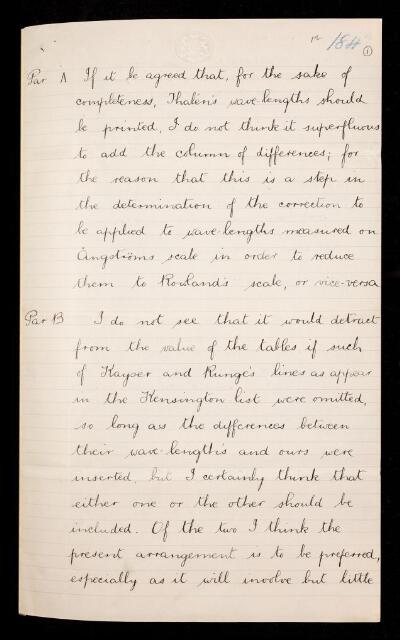 184
1
Par A If it be agreed that, for the sake of
completeness, Thalén's wave-lengths should
be printed, I do not think it superfluous
to add the column of differences; for
the reason that this is a step in
the determination of the correction to
be applied to wave-lengths measured on
Ångström's scale in order to reduce
them to Rowland's scale, or vice-versa
Par B I do not see that it would detract
from the value of the tables if such
of Kayser and Runge's lines as appear
in the Kensington list were omitted,
so long as the differences between
their wave-lengths and ours were
inserted, but I certainly think that
either one or the other should be
included. Of the two I think the
present arrangement is to be preferred,
especially as it will involve but little